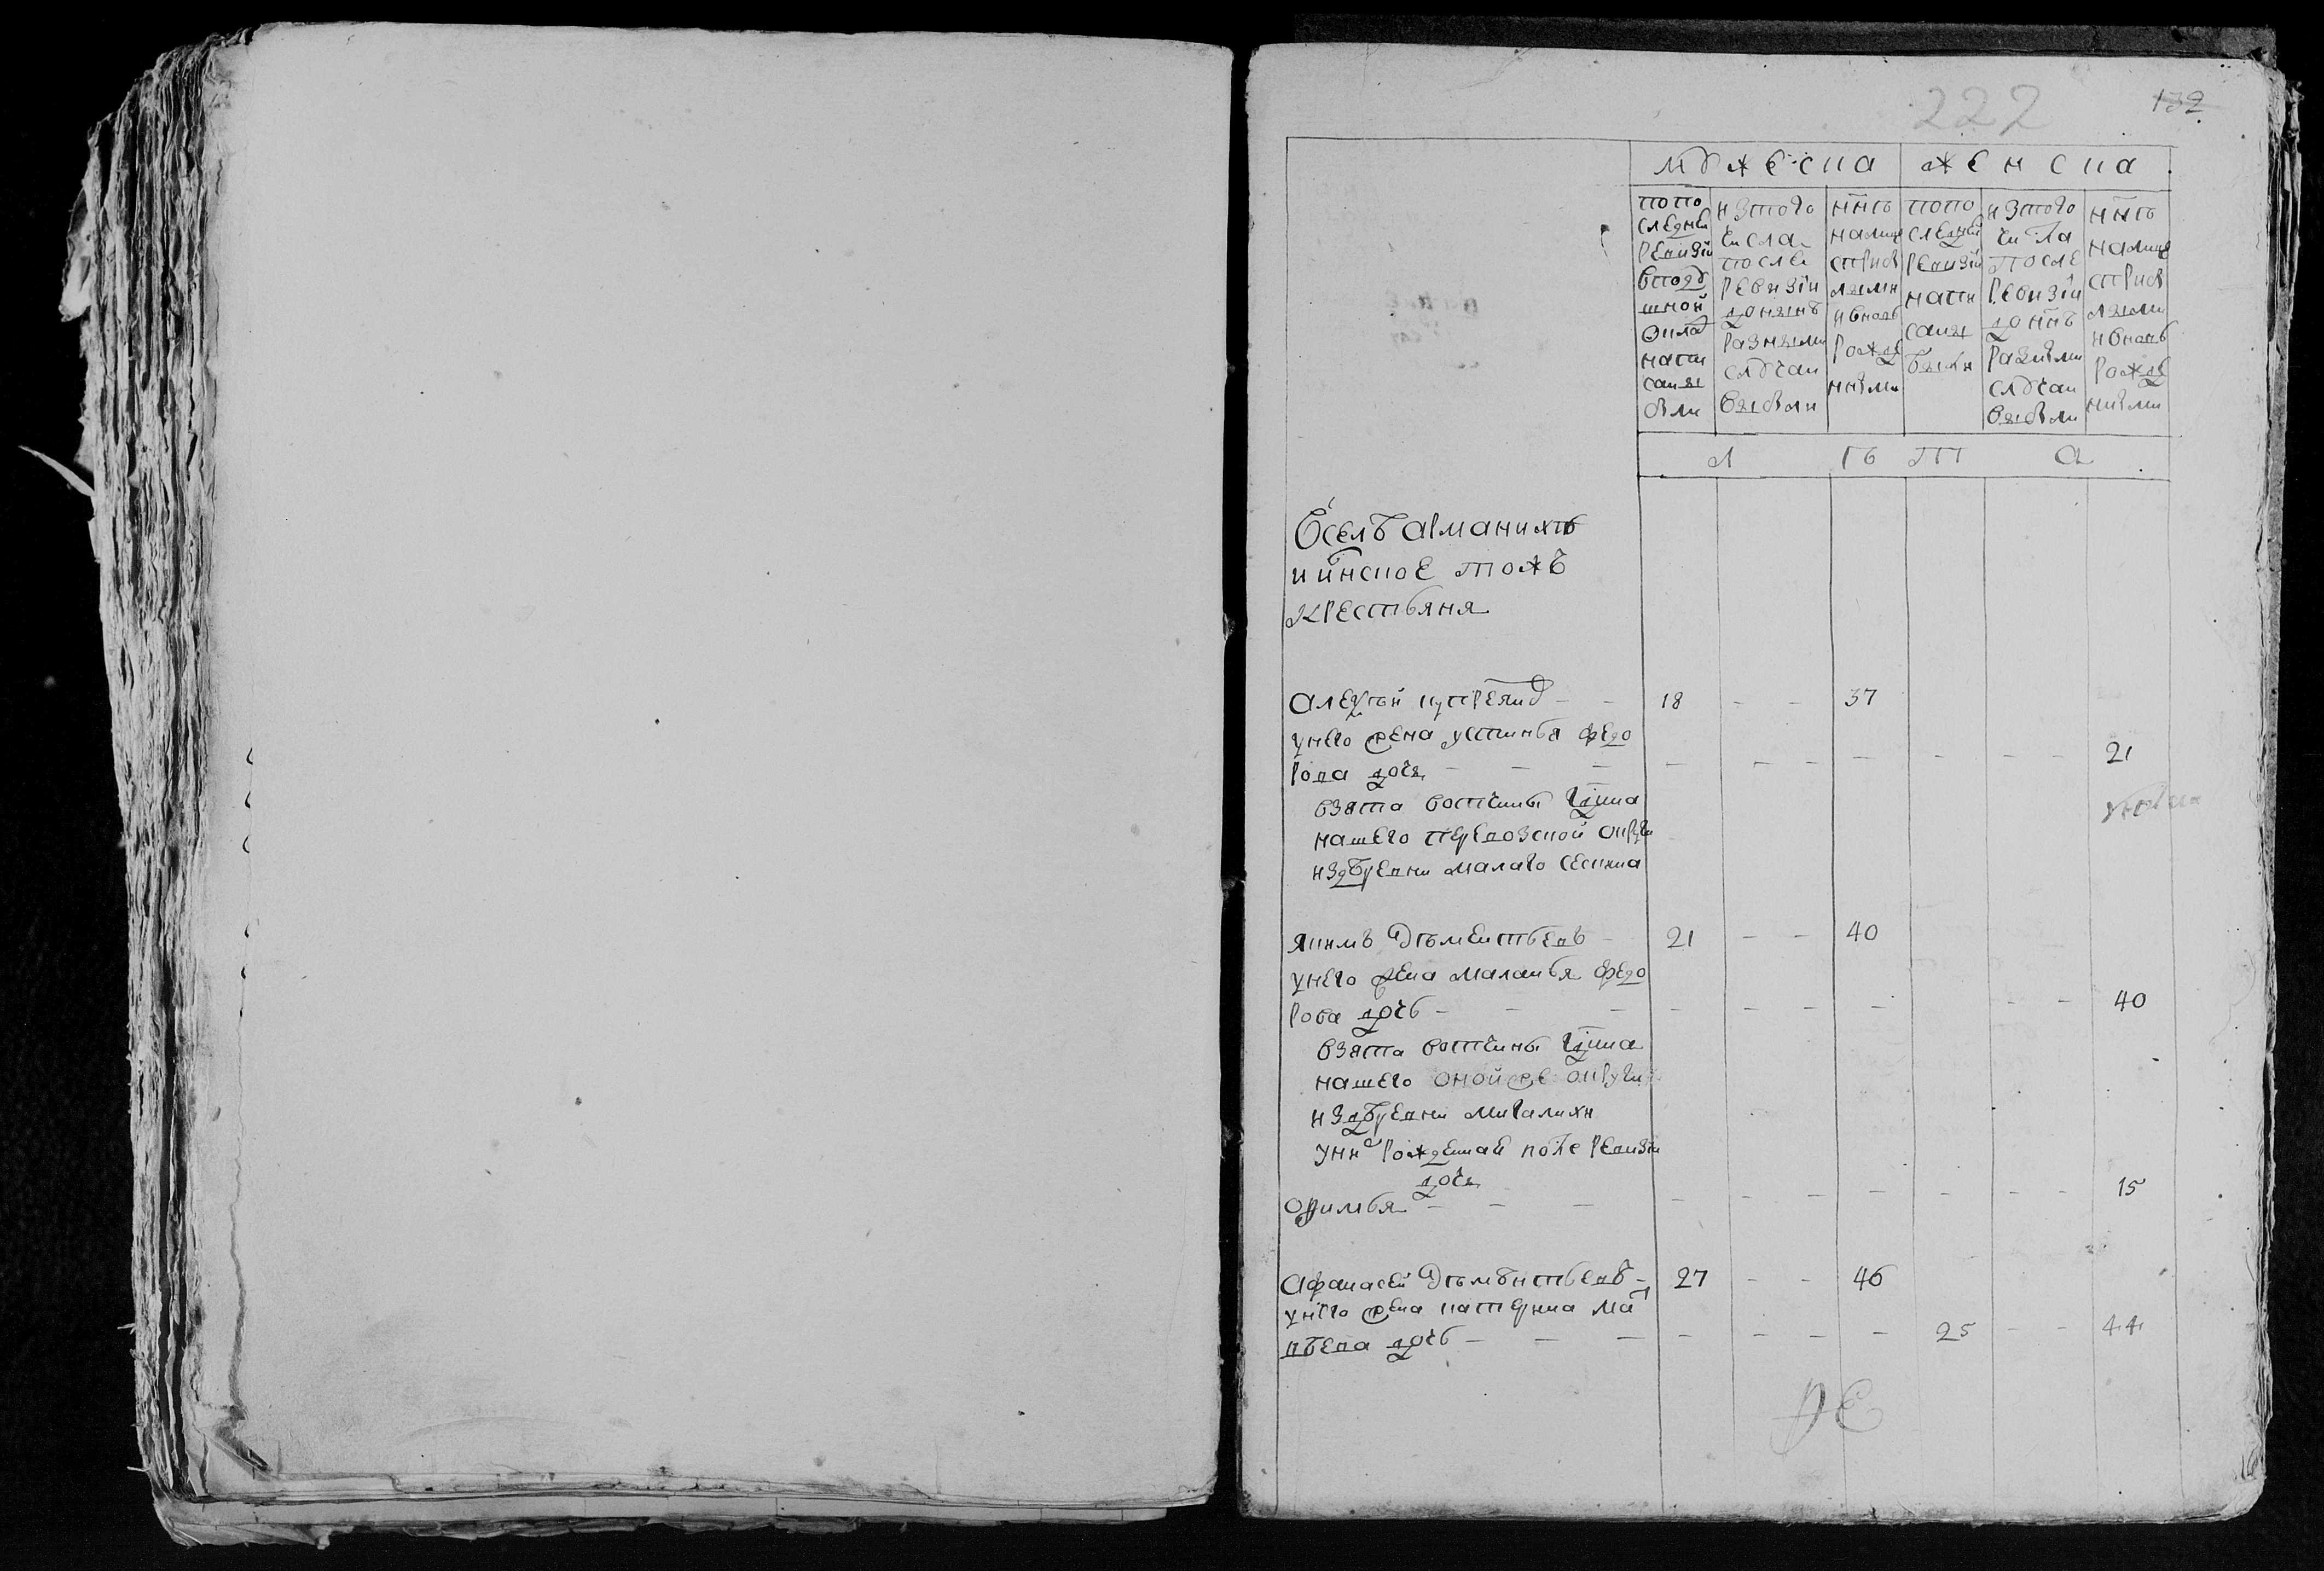 222
132
мужеска
женска
попо
следней
ревизiи
вподу
шной
окладъ
напи
саны
были
изтого
числа
после
ревизiи
доныне
разными
случаи
выбыли
ннѣ
налицо
сприбы
лыми
ивновь
рожде
нными
попо
следней
ревизiи
напи
саны
были
изтого
числа
после
ревизiи
доннѣ
разными
случаи
выбыли
ннѣ
налицо
сприбы
лыми
ивновь
рожде
нными
л ѣ т а
Вселѣ арманихѣ
иинское тожъ
крестьяня
Алексѣй 18 - - 37
унего жена устинья федо
рова дочь - - - 21
взята вотчины гдина
нашего перевозской округи
издеревни малаго сескина
якимъ дѣментьевъ - 21 - - 40
унего жена маланья федо
рова дочь - - - 40
взята вотчины гдина
нашего онойже округи
издеревни мигалихи
унихъ рожденная после ревизiи
дочь
офимья - - - 15
Афанасей дѣментьевъ - 27 - - 46
унего жена катерина ма
твѣева дочь - - - 25 - - 44